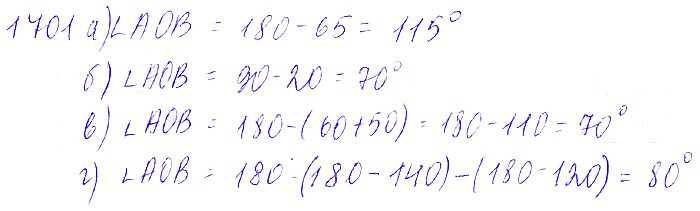 1701 а) ∠AOB = 180-65 = 115°
б) ∠AOB = 90-20 = 70°
в) ∠AOB = 180-(60+50) = 180-110 = 70°
г) ∠AOB = 180-(180-140)-(180-120) = 80°